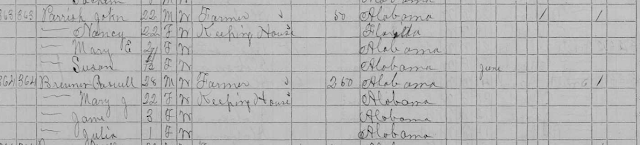 363 363 Parrish John 22 M W Farmer 50 Alabama /
— Nancy 22 F W Keeping House
— Mary E F W Alabama
— Susan F W Alabama June
364 364 28 M W Farmer 250 Alabama /
— Mary J 22 F W Keeping House Alabama
— Jane 3 F W Alabama
— Julia 1 F W Alabama